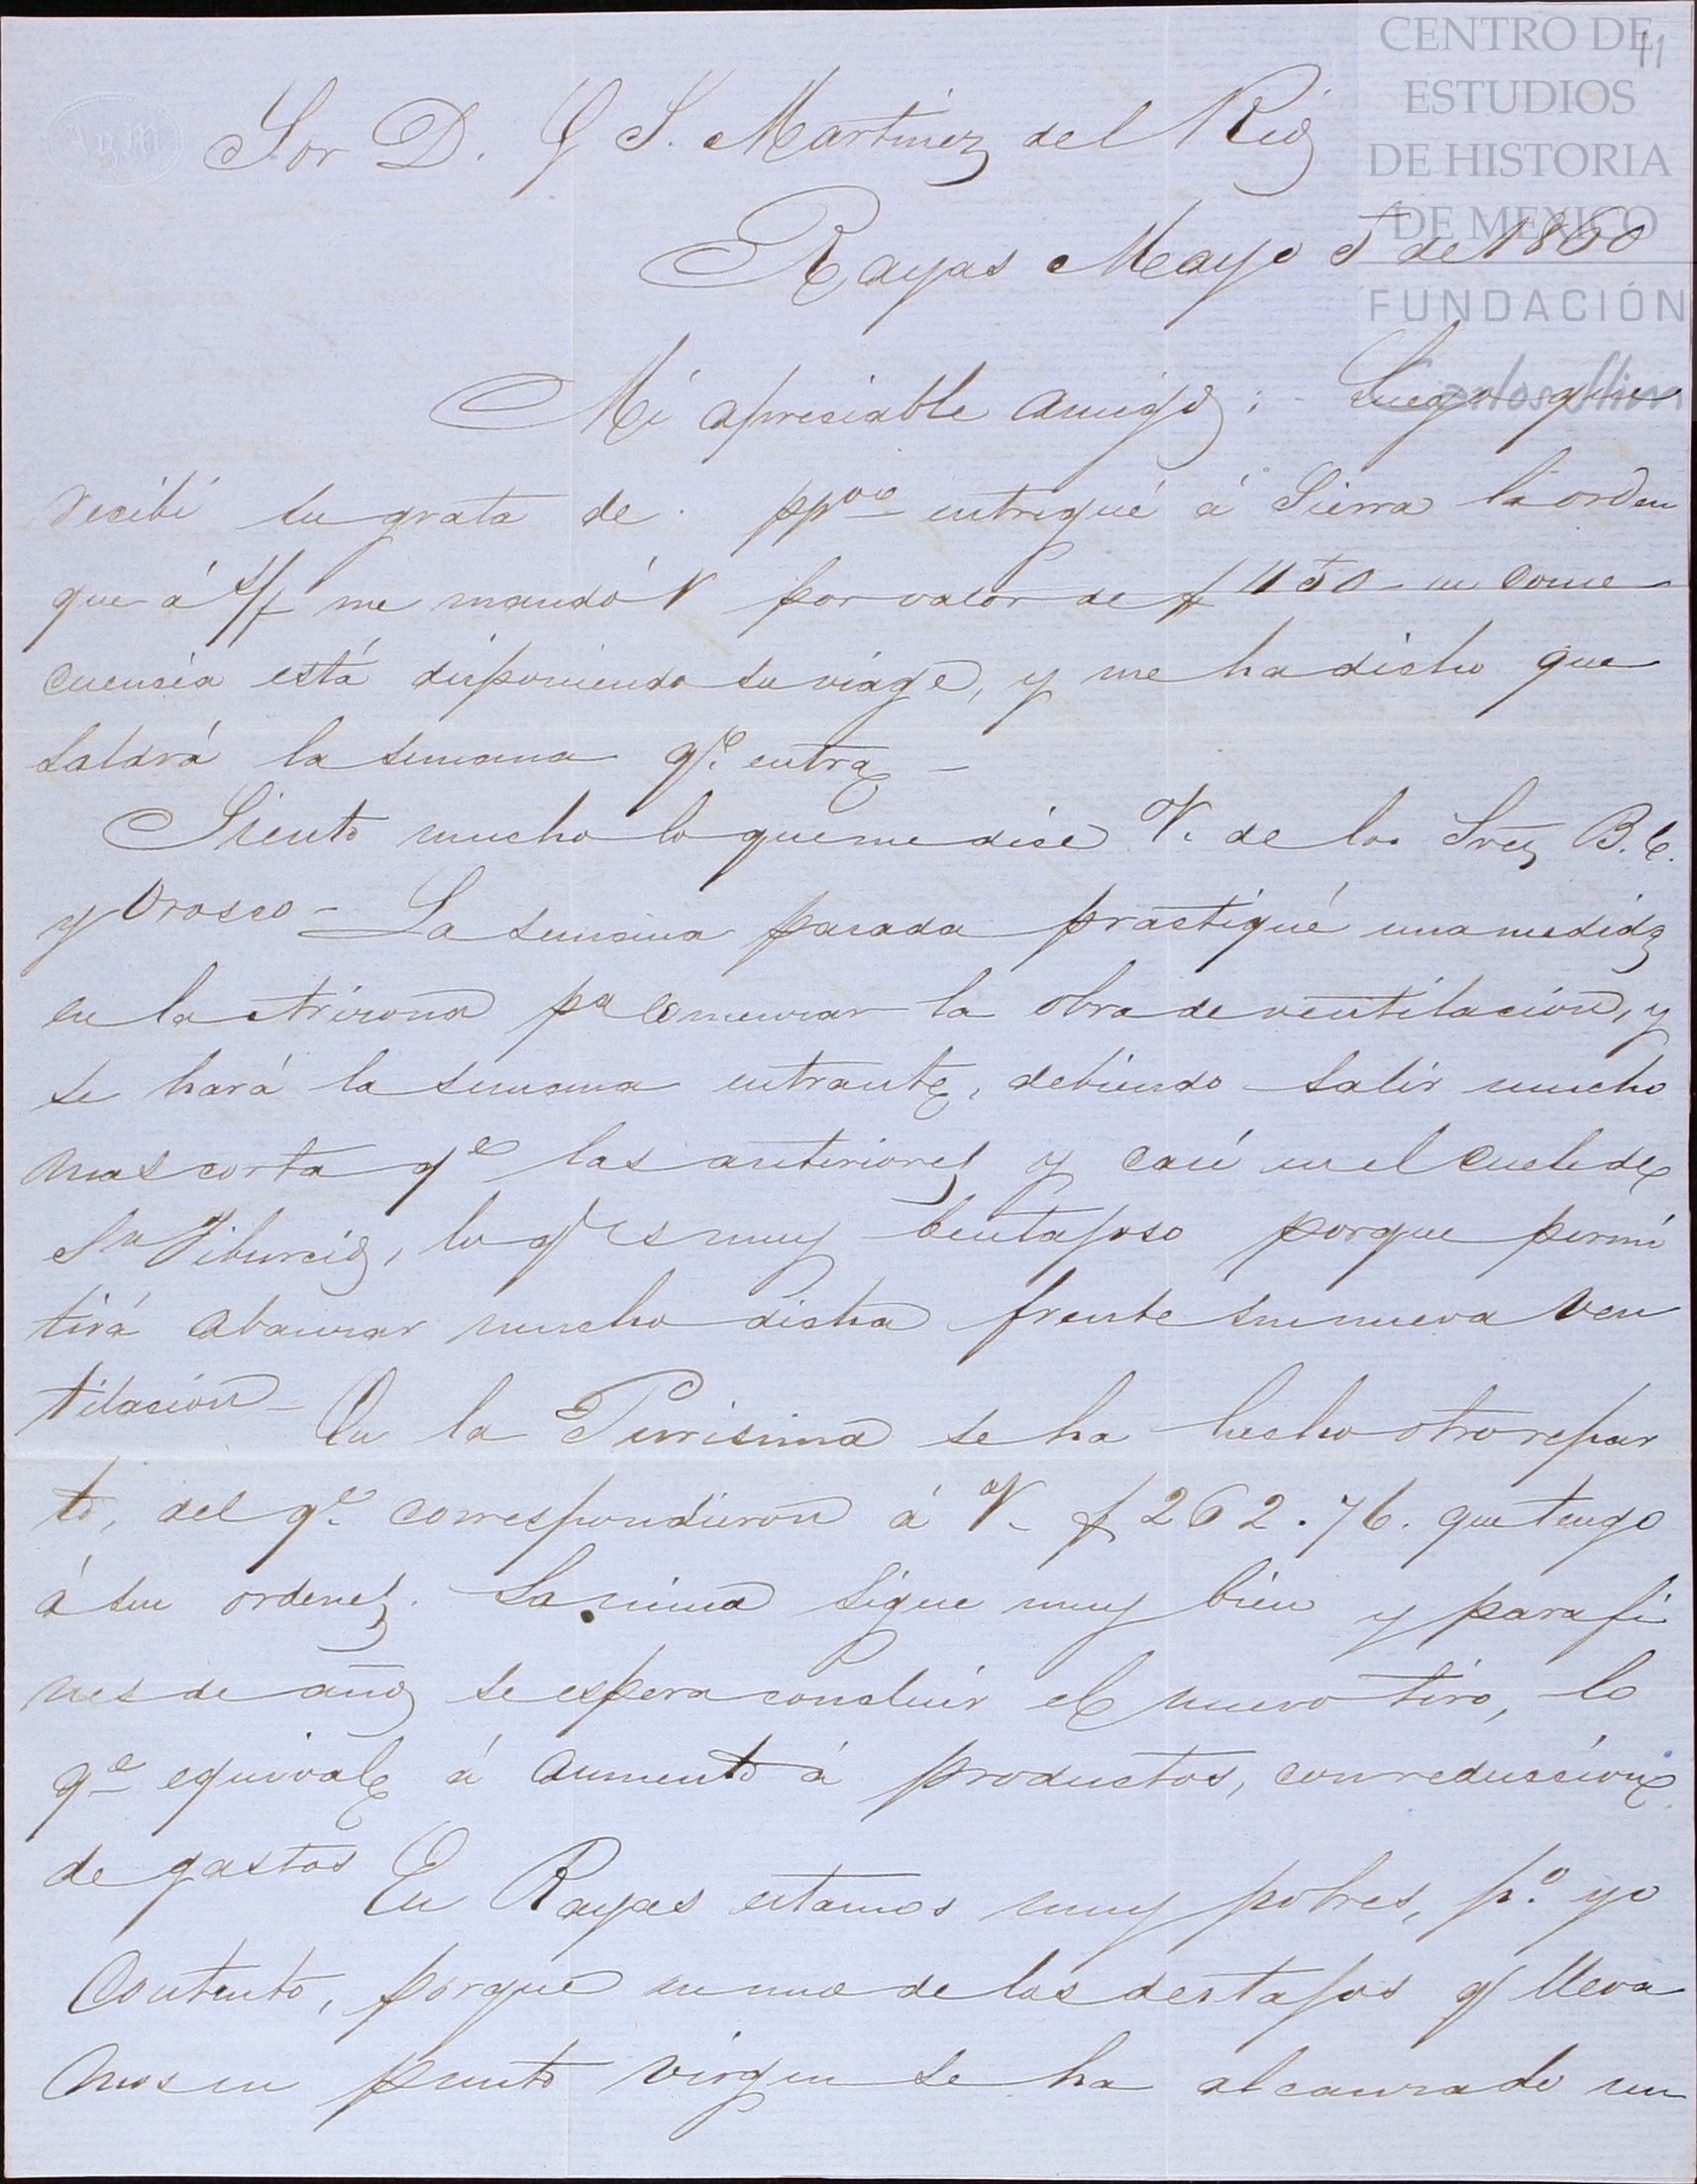 CENTRO DE
ESTUDIOS
DE HISTORIA
DE MEXICO
FUNDACIÓN
Carlos Slim
11
Sor D. J S. Martinez del Rio
Rayas Mayo 5 de 1860
Mi apreciable amigo: - Luego que
recibi su grata de ppdo entregué á Sierra la orden
que á s/f me mandó V por valor de $ 150 - en conse
cuencia está disponiendo su viage, y me ha dicho que
saldrá la semana qe. entra -
Siento mucho lo que me dice V. de los Sres B. C.
y Orosco - La semana pasada practiqué una medida
en la pa comenzar la obra de ventilacion, y
se hará la semana entrante, debiendo salir mucho
mas corta qe las anteriores y caé en el cuele de
Sn Tiburcio, lo qe es muy bentajoso porque permi
tirá abanzar mucho dicha frente sin nueva ven
tilacion - En la Purisima se ha hecho otro repar
to, del qe. correspondieron á V. $ 262.76. que tengo
á sus ordenes. La mina sigue muy bien y para fi
nes de año se espera concluir el nuevo tiro, lo
qe equivale á aumento á productos, con reduccion
de gastos En Rayas estamos muy pobres, po. yo
Contento, porque en uno de los destajos q lleva
mos en punto virgen se ha alcanzado un